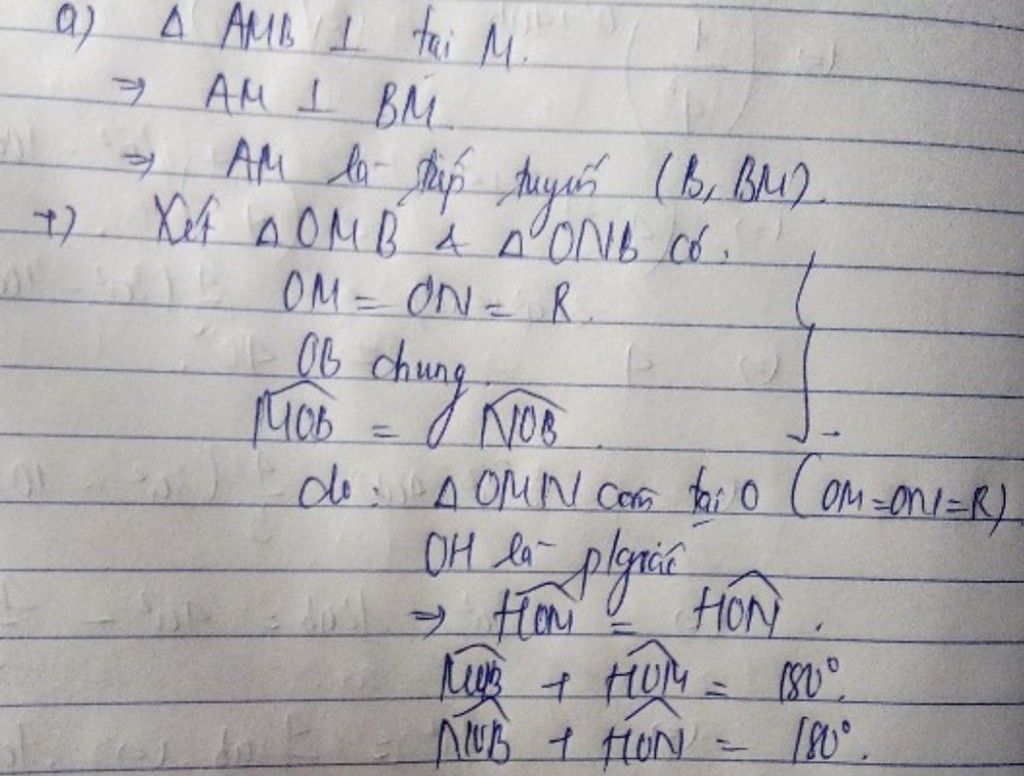 a) Δ AMB ⊥ tại M.
⇒ AM ⊥ BM
⇒ AM là tiếp tuyến (B, BM).
+) Xét Δ OMB & Δ ONB có.
OM = ON = R.
OB chung.
\widehat{MOB} = \widehat{NOB}.
do: Δ OMN cân tại O (OM=ON=R)
OH là p/giác
⇒ \widehat{HOM} = \widehat{HON}.
\widehat{MOB} + \widehat{HOM} = 180°.
\widehat{NOB} + \widehat{HON} = 180°.